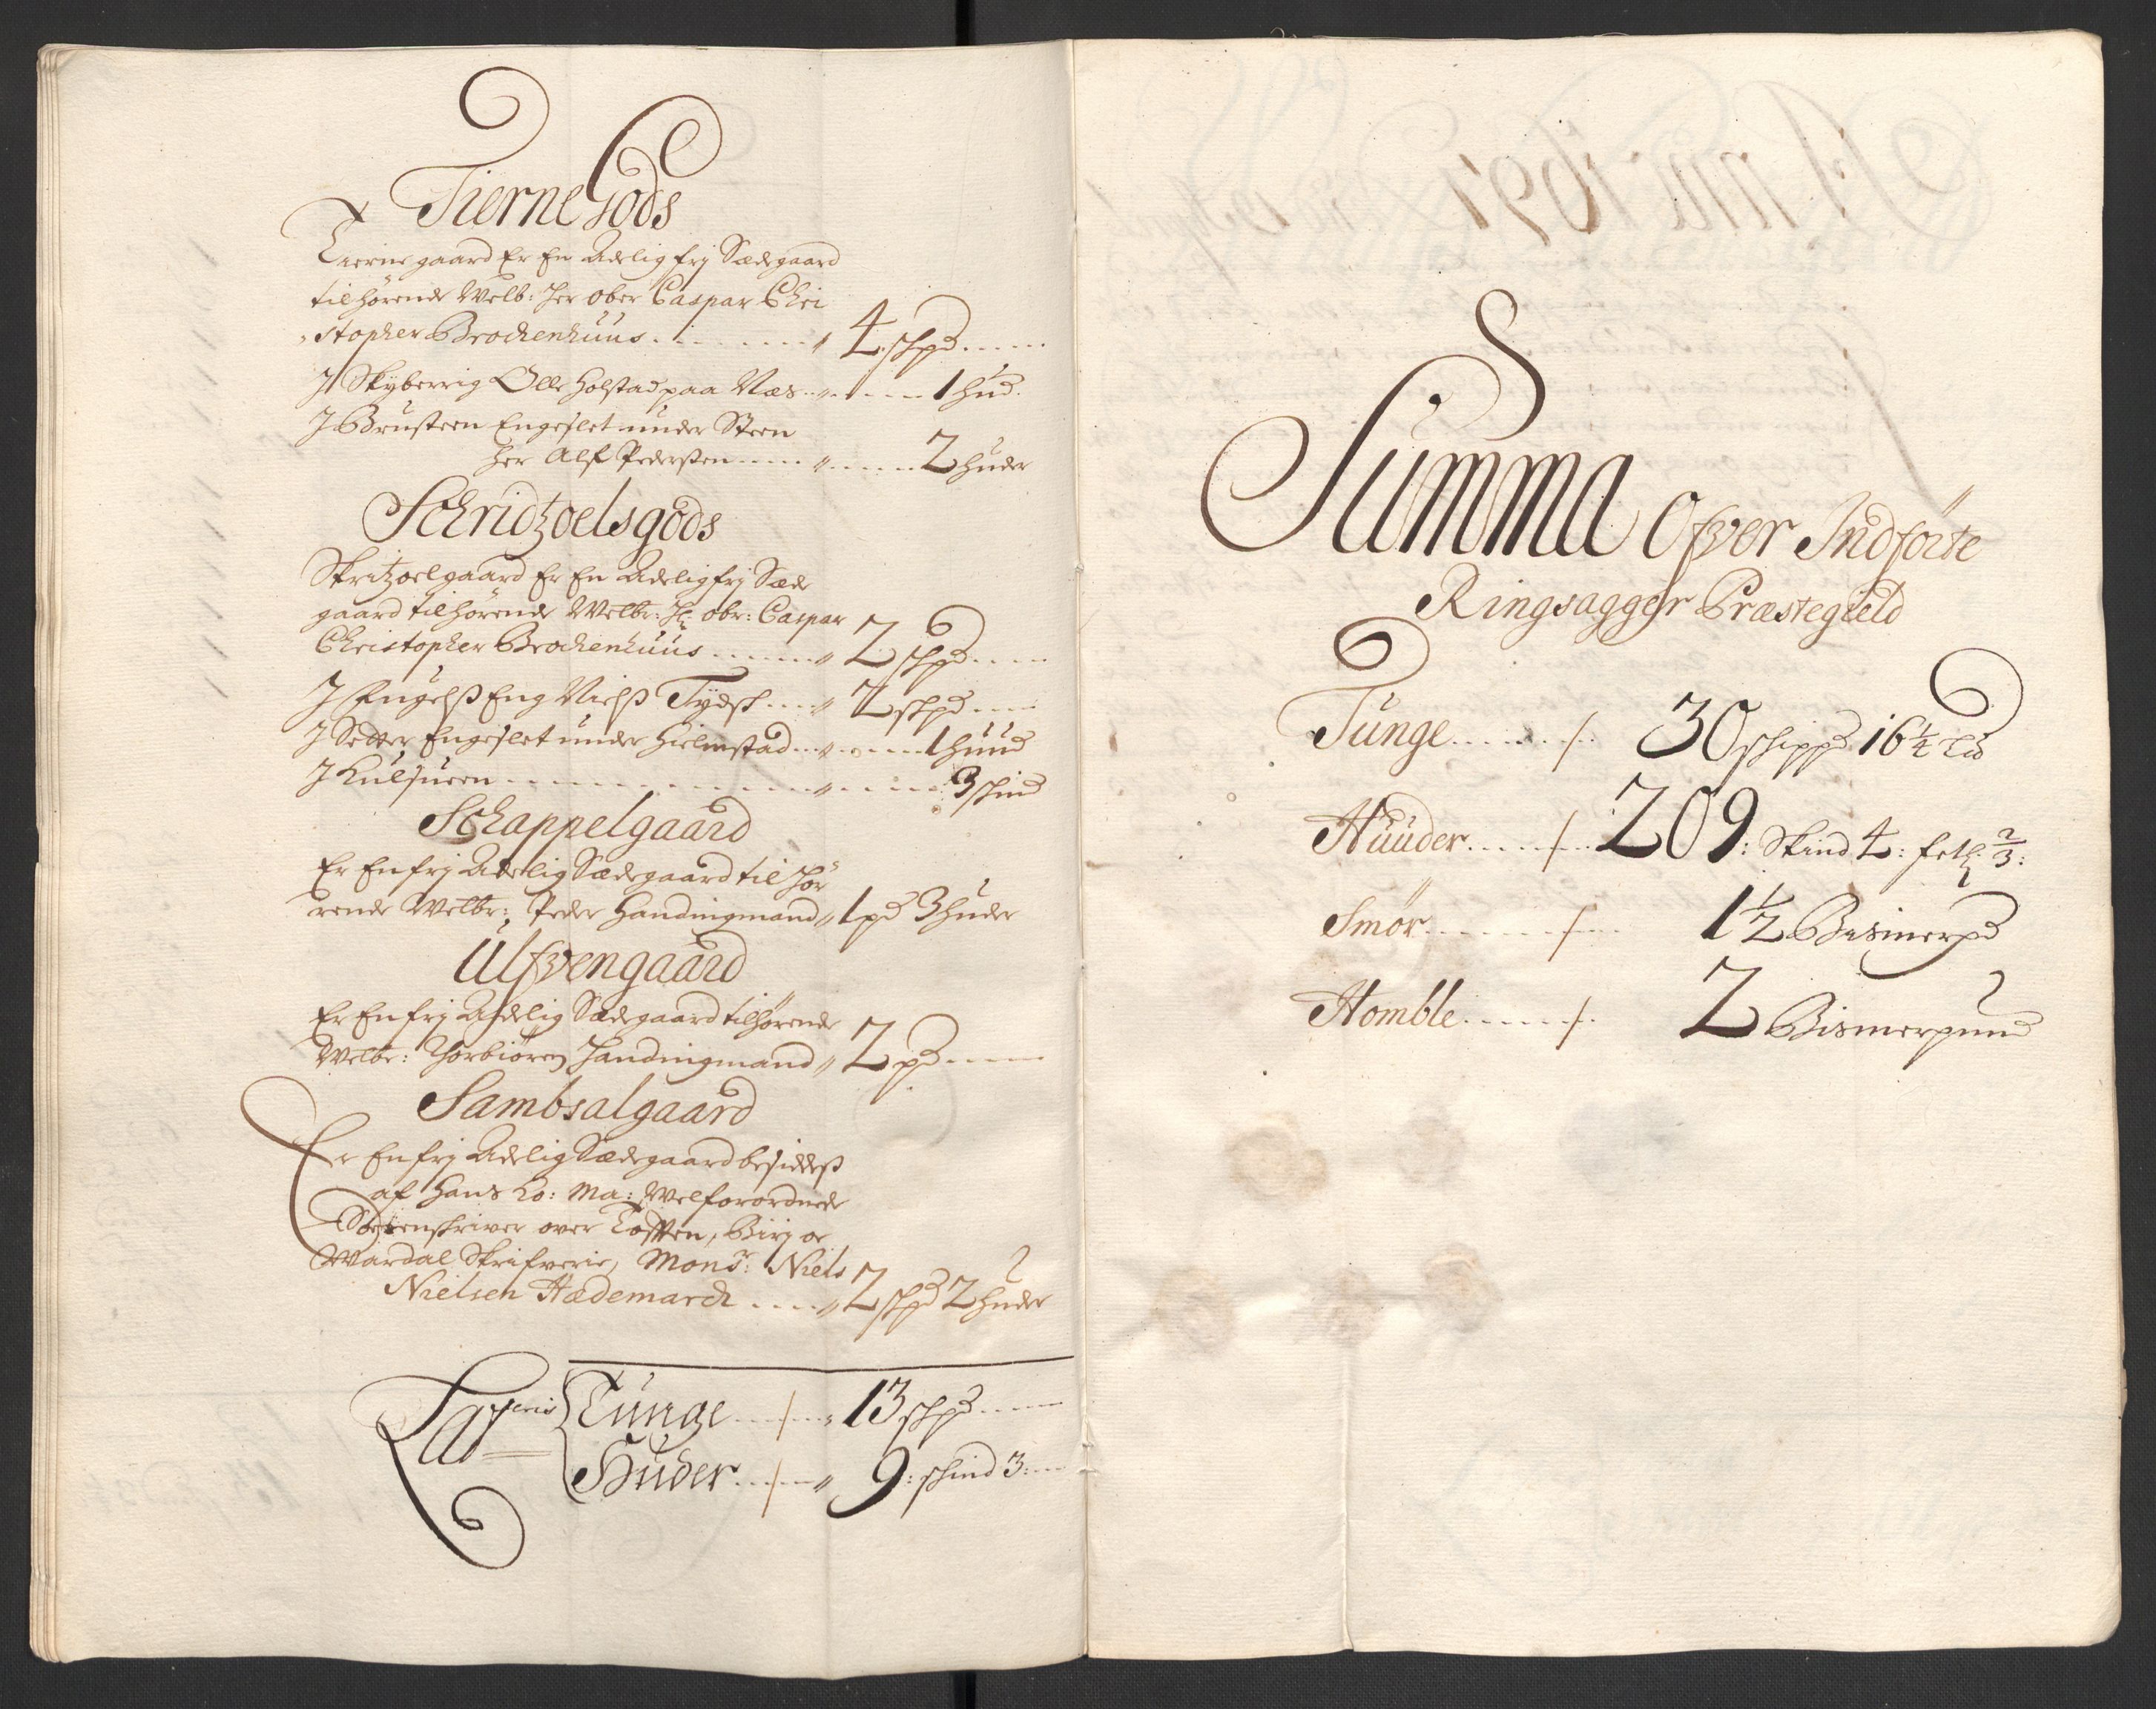 Tierne Gods
Tierne gaard Er En Adelig frj Sædegaard
tilhørende Welb: Her ober Caspar Chri
stopher Brochenhuus . . . . . " 4. schpd . . . .
J Skyberrig Olle Holstad paa Næs . . " . . . . 1 hud.
J Brusteen Engeslet under Steen
her Alf Pederßen . . . . " . . . . 2 huder
Schridtzoelsgods
Skritzoelgaard Er En Adelig frj Sæde
gaard tilhørende Welbr: H: obr: Caspar
Christopher Brochenhuus . . . . " 2 schpd . . . .
J Engelsß Eng Nielß Tydsk . . . " 2 skpd . . . .
J Setter Engeslet under Hielmstad . . " . . . . 1 huud
J Kulsueen . . . . . . . . " . . . . 3 skind
Schappelgaard
Er En frj Adelig Sædegaard til hør
rende Welbr: Peder Handingmand " 1 pd 3 huder
Ulfvengaard
Er En frj Adelig Sædegaard tilhørende
Welbr: Thorbiøren Handingmand " 2 pd . . . .
Sambsalgaard
Er En frj Adelig Sædegaard besiddeß
af Hans Ko: Ma: Welforordnede
Sorenskriver over Totten, Birj oc
Wardal Skrifverie, Monsr: Niels
Nielsen Hædemarch . . . . " 2 schpd 2 huder
Lateris { Tunge . . . / . . " 13 schpd . . . .
Huder . . . / . . " 9: skind 3: . .
Summa Ofver Indførte
Ringsagger Præstegield
Tunge . . . . . / . 30 schippd 16 1/4 Ld
Huuder . . . . / . . 209: Skind 4: feth: 2/3:
Smør . . . . . / . . 1 1/2 Bismerpd
Homble . . . . . / . 2 Bismerpund